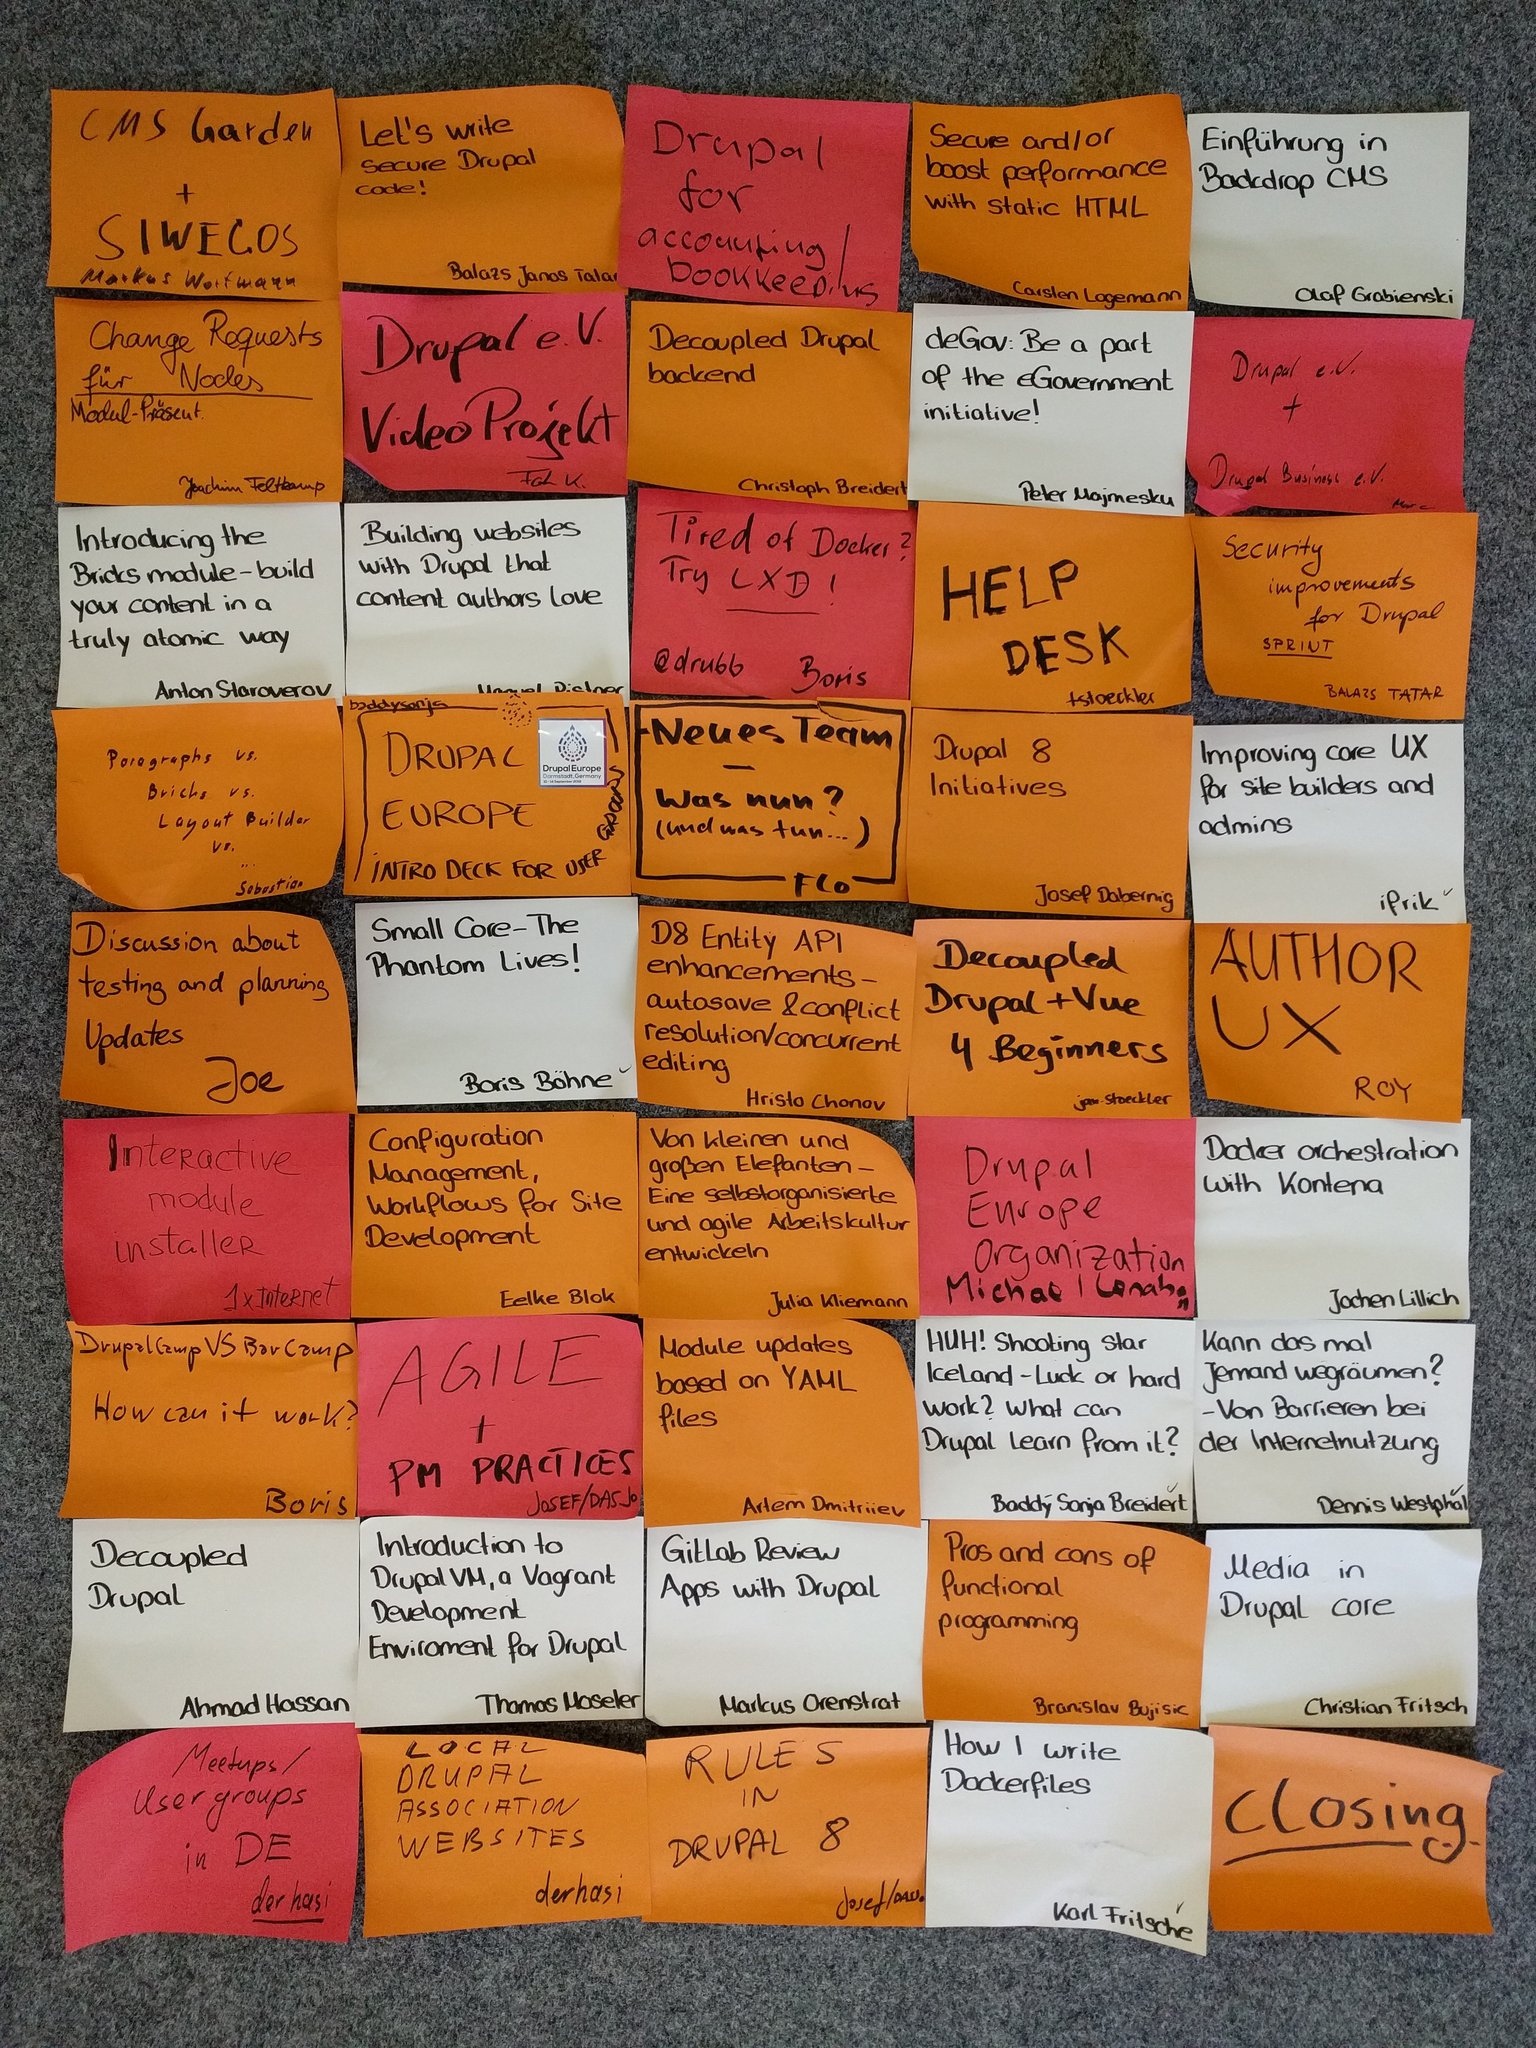 CMS Garden
+
SIWECOS
Markus Wortmann
Let's write
secure Drupal
code!
Balazs Janos Tatar
Drupal
for
accounting/
bookkeeping
Secure and/or
boost performance
with static HTML
Carsten Logemann
Einführung in
Backdrop CMS
Olaf Grabienski
Change Requests
für Nodes
Modul-Präsent.
Joachim Feltkamp
Drupal e.V.
Video Projekt
Decoupled Drupal
backend
Christoph Breidert
deGov: Be a part
of the eGovernment
initiative!
Peter Majmesku
Drupal e.V.
+
Drupal Business e.V.
Introducing the
Bricks module - build
your content in a
truly atomic way
Anton Staroverov
Building websites
with Drupal that
content authors love
Tired of Docker?
Try LXD!
@dru66 Boris
HELP
DESK
tstoeckler
Security
improvements
for Drupal
SPRINT
BALAZS TATAR
Paragraphs vs.
Bricks vs.
Layout Builder
vs.
...
Sebastian
baddysonja
DRUPAL
EUROPE
INTRO DECK FOR USER
GROUPS
DrupalEurope
Darmstadt, Germany
Neues Team
—
Was nun?
(und was tun...)
FLO
Drupal 8
Initiatives
Josef Dabernig
Improving core UX
for site builders and
admins
ifrik
Discussion about
testing and planning
Updates
Joe
Small Core - The
Phantom Lives!
Boris Böhne
D8 Entity API
enhancements -
autosave & conflict
resolution/concurrent
editing
Hristo Chonov
Decoupled
Drupal + Vue
4 Beginners
AUTHOR
UX
ROY
Interactive
module
installer
1xInternet
Configuration
Management,
Workflows for Site
Development
Eelke Blok
Von kleinen und
großen Elefanten -
Eine selbstorganisierte
und agile Arbeitskultur
entwickeln
Julia Kliemann
Drupal
Europe
Organization
Michael Lenahan
Docker orchestration
with Kontena
Jochen Lillich
DrupalCamp VS BarCamp
How can it work?
Boris
AGILE
+
PM PRACTICES
JOSEF/DASJO
Module updates
based on YAML
files
Artem Dmitriiev
HUH! Shooting star
Iceland - Luck or hard
work? What can
Drupal learn from it?
Baddý Sonja Breidert
Kann das mal
Jemand wegräumen?
- Von Barrieren bei
der Internetnutzung
Dennis Westphal
Decoupled
Drupal
Ahmad Hassan
Introduction to
DrupalVM, a Vagrant
Development
Enviroment for Drupal
Thomas Moseler
GitLab Review
Apps with Drupal
Markus Orenstrat
Pros and cons of
functional
programming
Branislav Bujisic
Media in
Drupal core
Christian Fritsch
Meetups/
User groups
in DE
derhasi
LOCAL
DRUPAL
ASSOCIATION
WEBSITES
derhasi
RULES
IN
DRUPAL 8
How I write
Dockerfiles
Karl Fritsche
Closing